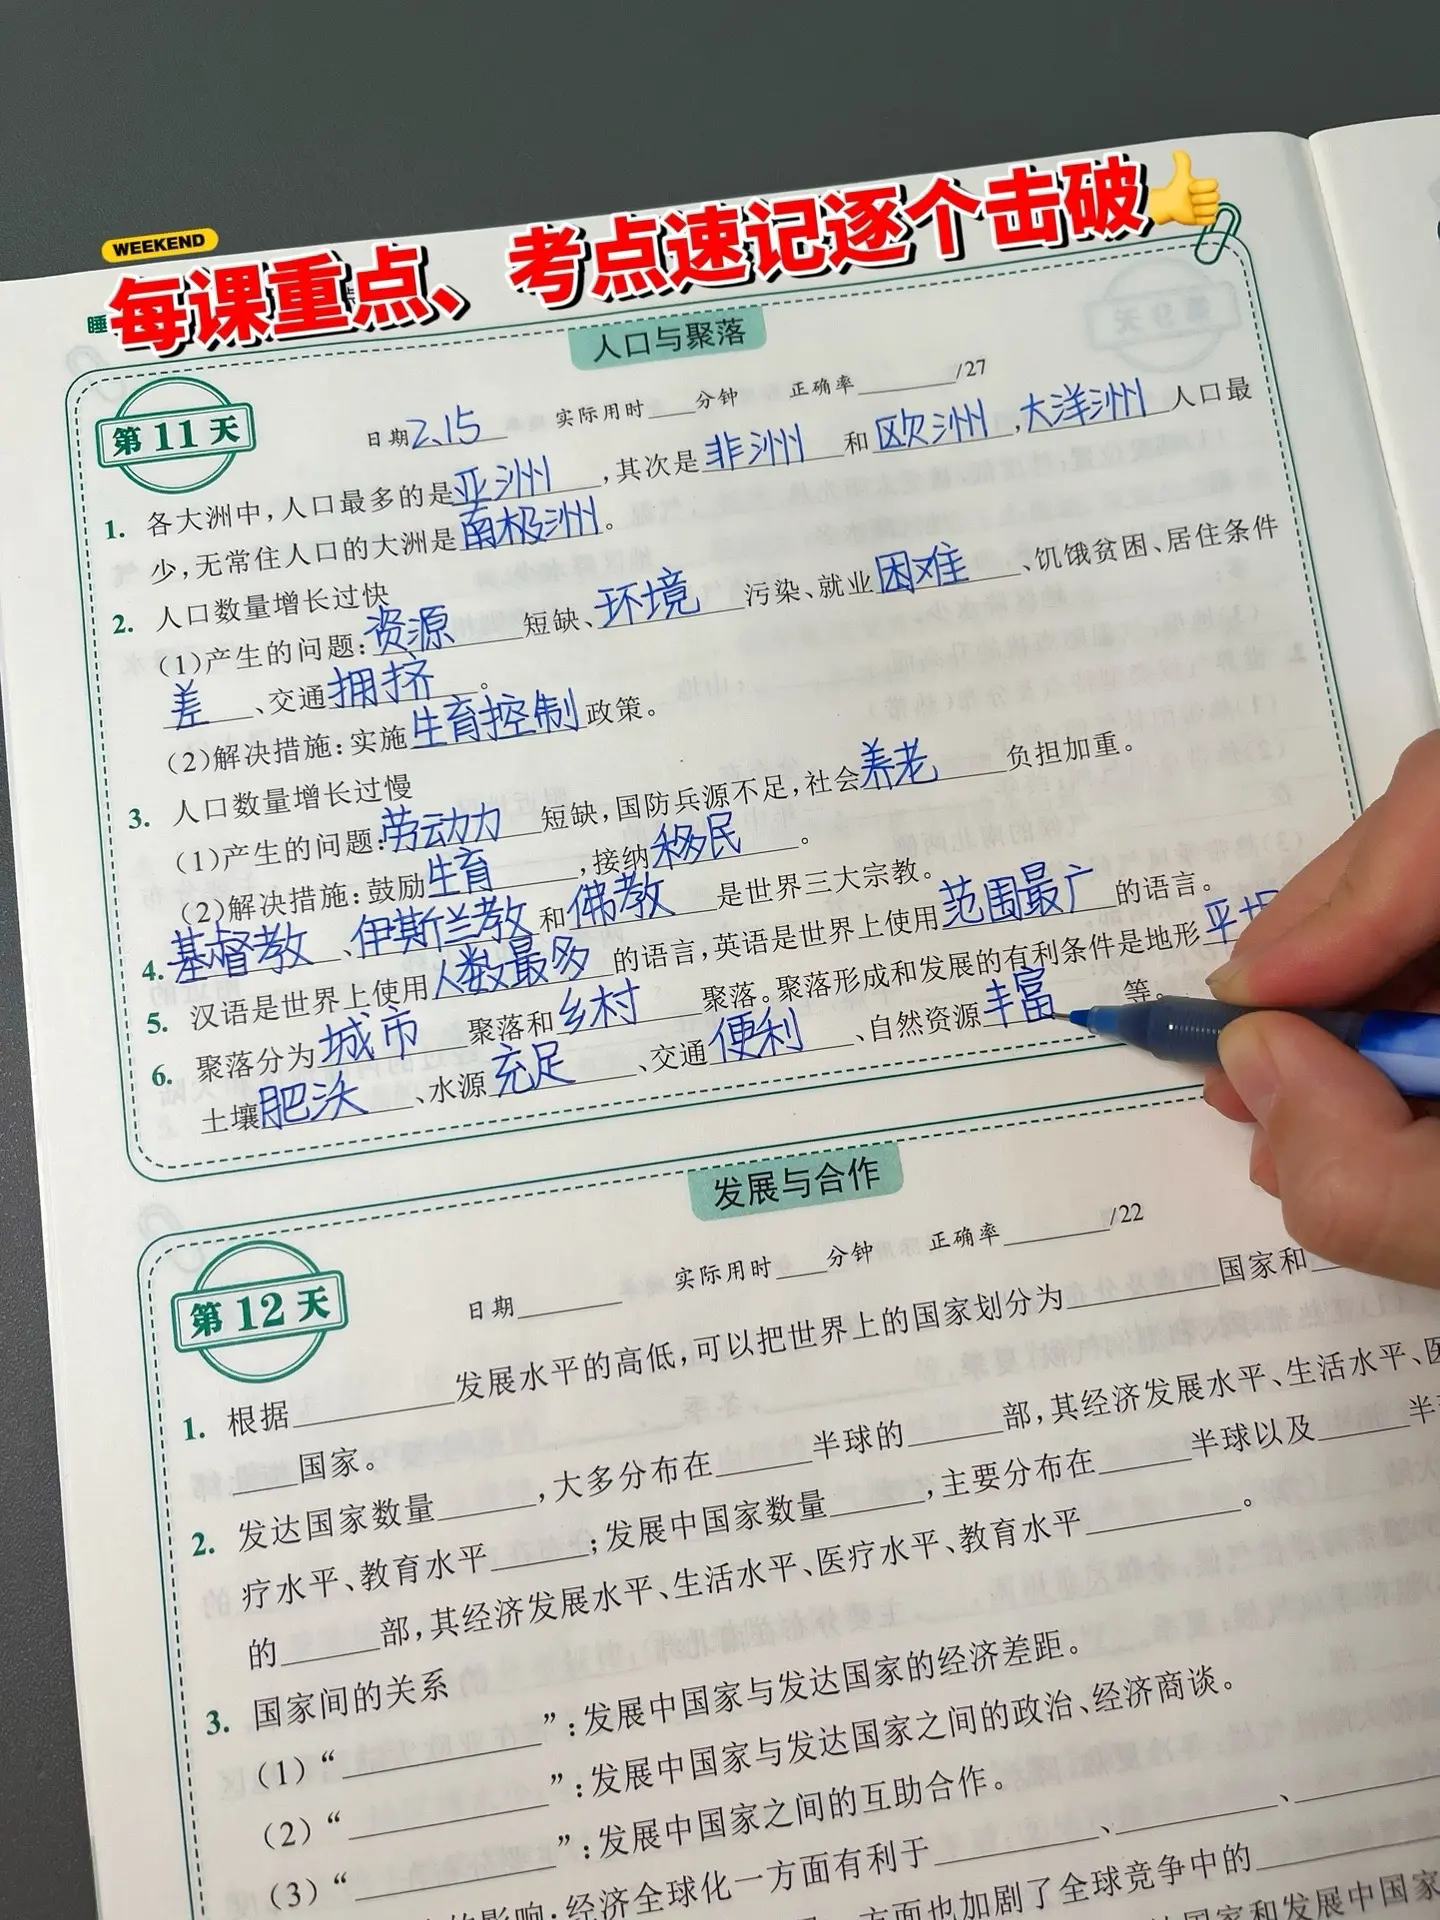 WEEKEND
每课重点、考点速记逐个击破
睡
人口与聚落
第11天
日期2.15 实际用时____分钟 正确率______/27
1. 各大洲中,人口最多的是亚洲,其次是非洲和欧洲,大洋洲人口最
少,无常住人口的大洲是南极洲。
2. 人口数量增长过快
(1)产生的问题:资源短缺、环境污染、就业困难、饥饿贫困、居住条件
差、交通拥挤。
(2)解决措施:实施生育控制政策。
3. 人口数量增长过慢
(1)产生的问题:劳动力短缺,国防兵源不足,社会养老负担加重。
(2)解决措施:鼓励生育,接纳移民。
4. 基督教、伊斯兰教和佛教是世界三大宗教。
5. 汉语是世界上使用人数最多的语言,英语是世界上使用范围最广的语言。
6. 聚落分为城市聚落和乡村聚落。聚落形成和发展的有利条件是地形平坦
土壤肥沃、水源充足、交通便利、自然资源丰富等。
发展与合作
第12天
日期______ 实际用时____分钟 正确率______/22
1. 根据______发展水平的高低,可以把世界上的国家划分为______国家和
____国家。
2. 发达国家数量____,大多分布在____半球的____部,其经济发展水平、生活水平、医
疗水平、教育水平____;发展中国家数量____,主要分布在____半球以及____半
的____部,其经济发展水平、生活水平、医疗水平、教育水平______。
3. 国家间的关系
(1)“________”:发展中国家与发达国家的经济差距。
(2)“________”:发展中国家与发达国家之间的政治、经济商谈。
(3)“________”:发展中国家之间的互助合作。
的影响:经济全球化一方面有利于______、______、______
方面也加剧了全球竞争中的______
国家和发展中国家